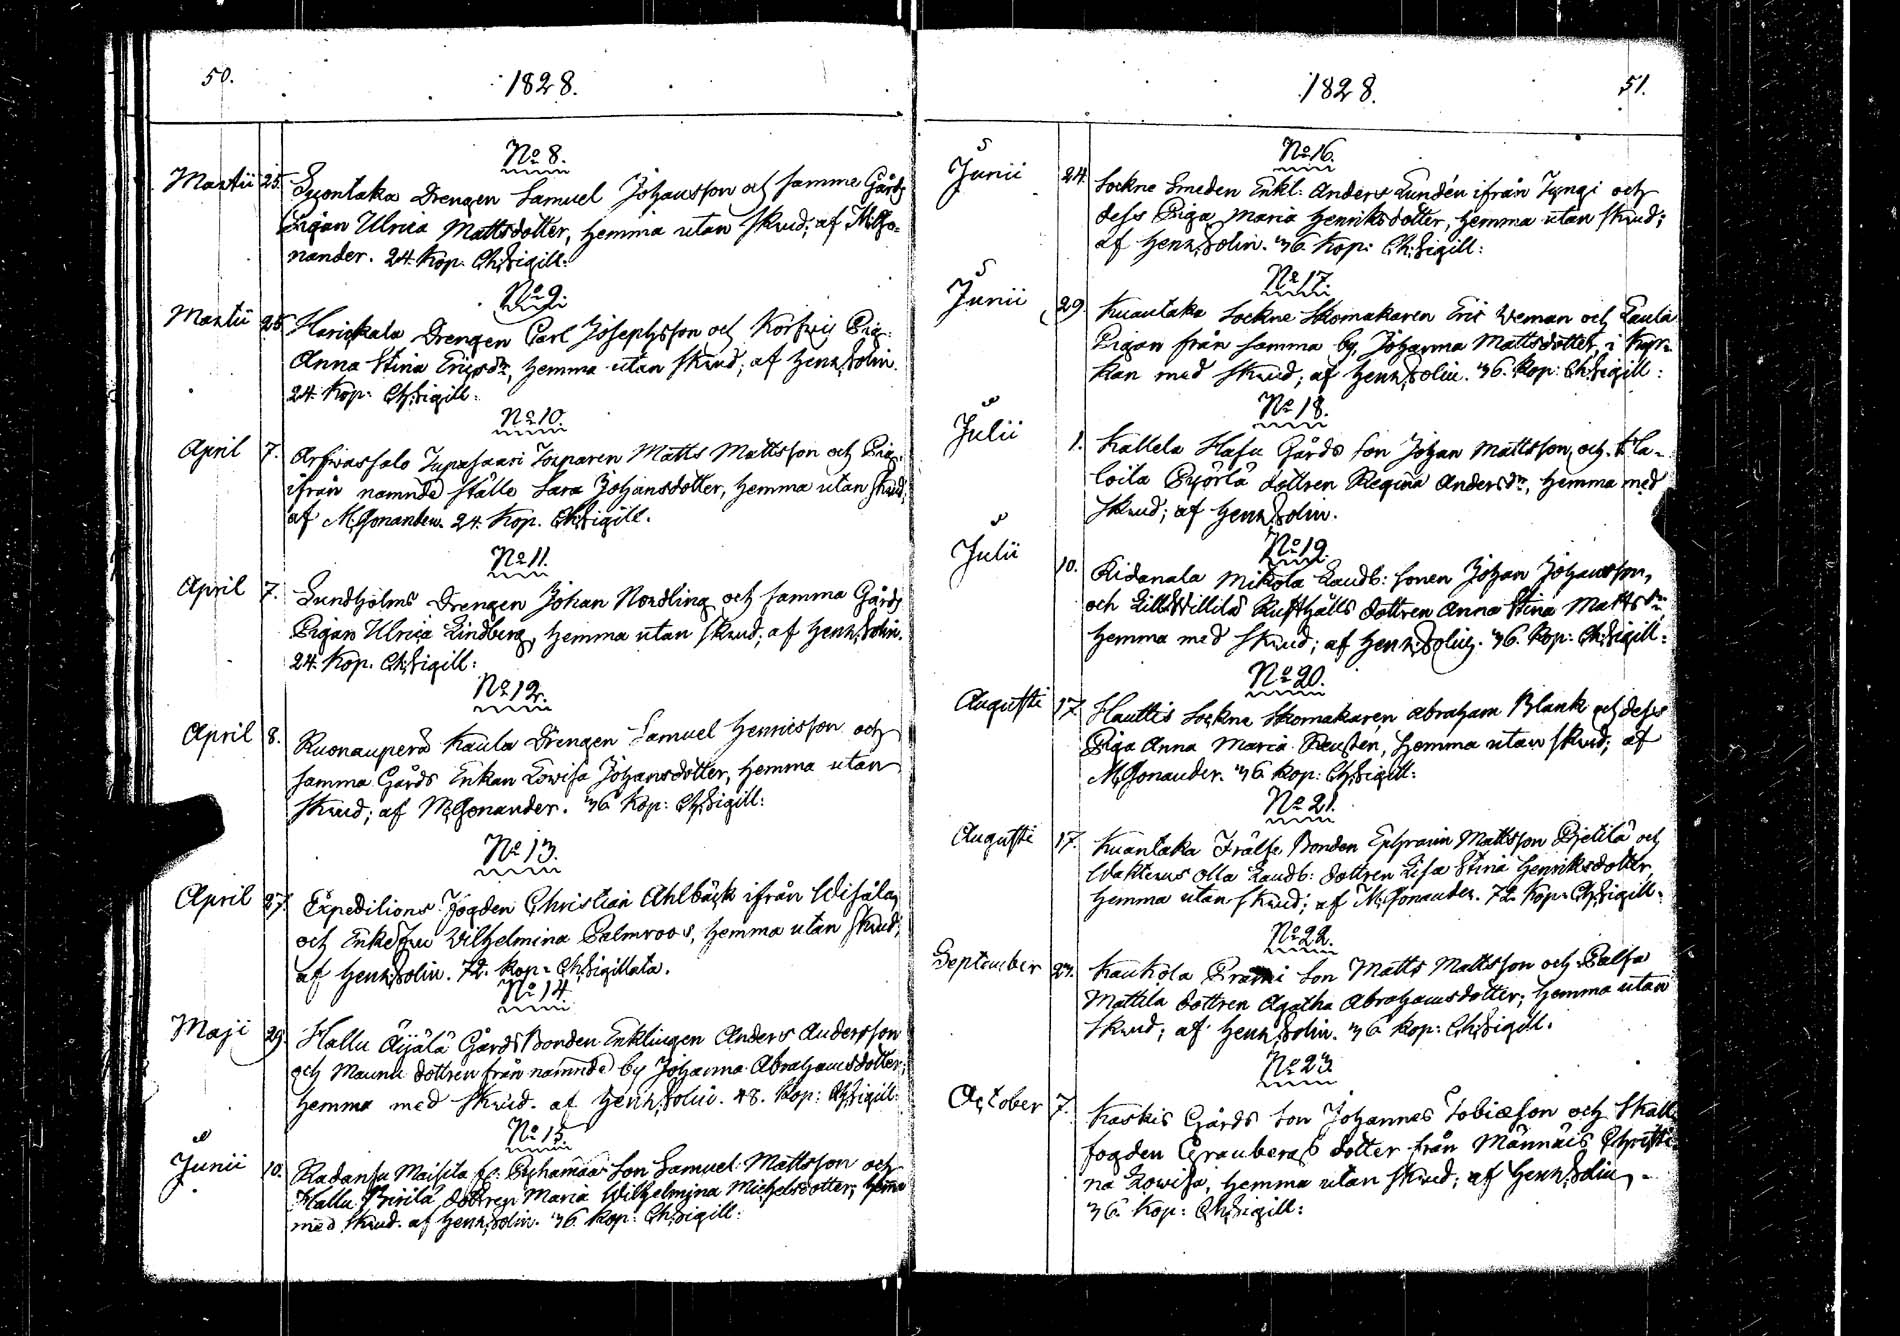 50.
1828.
No 8.
Martii 25. Suontaka Drengen Samuel Johansson och samma Gårds
Pigan Ulrica Mattsdotter, hemma utan skrud; af M. Go-
nander. 24. Kop: Ch. Sigill:
No 9.
Martii 25. Harickala Drengen Carl Josephsson och Korfwis Pig.
Anna Stina Ericsdr, hemma utan skrud; af Henr. Solin.
24. Kop: Ch. Sigill:
No 10.
April 7. Arfwassalo Jupasaari Torparen Matts Mattsson och Pig.
ifrån namnde ställe Sara Johansdotter, hemma utan skrud;
af M. Gonander. 24. Kop. Ch. Sigill.
No 11.
April 7. Sundholms Drengen Johan Nordling och samma Gårds
Pigan Ulrica Lindberg, hemma utan skrud; af Henr. Solin.
24. Kop. Ch. Sigill:
No 12.
April 8. Ruonauperä Kaula Drengen Samuel Henricsson och
samma Gårds Enkan Lowisa Johansdotter, hemma utan
skrud; af M. Gonander. 36. Kop: Ch. Sigill:
No 13.
April 27. Expeditions Fogden Christian Ahlbäck ifrån Wisåla,
och Enkefru Wilhelmina Palmroos, hemma utan skrud;
af Henr. Solin. 72. Kop: Ch. Sigillata.
No 14.
Maji 29. Hallu Äijälä Gårds Bonden Enklingen Anders Andersson
och Maunu dottren från namnde by Johanna Abrahamsdotter,
hemma med skrud. af Henr. Solin. 48. Kop: Ch. Sigill:
No 15.
Junii 10. Radansu Maisila Son Samuel Mattsson och
Hallu Pirilä dottren Maria Wilhelmina Michelsdotter; hemma
med skrud. af Henr. Solin. 36. Kop: Ch. Sigill:
1828.
51.
No 16.
Junii 24. Sockne Smeden Enkl: Anders Lundén ifrån Tyngi och
dess Piga Maria Henriksdotter, hemma utan skrud;
af Henr. Solin. 36. Kop: Ch. Sigill:
No 17.
Junii 29. Kuantaka Sockne Skomakaren Eric Weman och Kaula
Pigan från samma by, Johanna Mattsdotter, i Kyr-
kan med skrud; af Henr. Solin. 36. Kop: Ch. Sigill:
No 18.
Julii 1. Kallela Hasu Gårds Son Johan Mattsson, och Ha-
loila Pyörlä dottren Regina Andersdr, hemma med
skrud; af Henr. Solin.
No 19.
Julii 10. Ridanala Mikola Landb: Sonen Johan Johansson,
och Lill Willilä Rusthålls dottren Anna Stina Mattsdr
hemma med skrud; af Henr. Solin. 36. Kop: Ch. Sigill:
No 20.
Augusti 17. Hauttis Sockne Skomakaren Abraham Blank och dess
Piga Anna Maria Reusén, hemma utan skrud; af
M. Gonander. 36 Kop: Ch. Sigill:
No 21.
Augusti 17. Kuantaka Frälse Bonden Ephraim Mattsson Pietilä och
Wahterus Olla Landb: dottren Lisa Stina Henriksdotter,
hemma utan skrud; af M. Gonander. 72. Kop: Ch. Sigill:
No 22.
September 23. Kaukola Prami Son Matts Mattsson och Palsa
Mattila dottren Agatha Abrahamsdotter; hemma utan
skrud; af Henr. Solin. 36 Kop: Ch. Sigill:
No 23.
October 7. Kaskis Gårds Son Johannes Tobiæson och Skall
fogden Graubergs dotter från Männäis Christi-
na Lowisa, hemma utan skrud; af Henr. Solin.
36. Kop: Ch. Sigill: